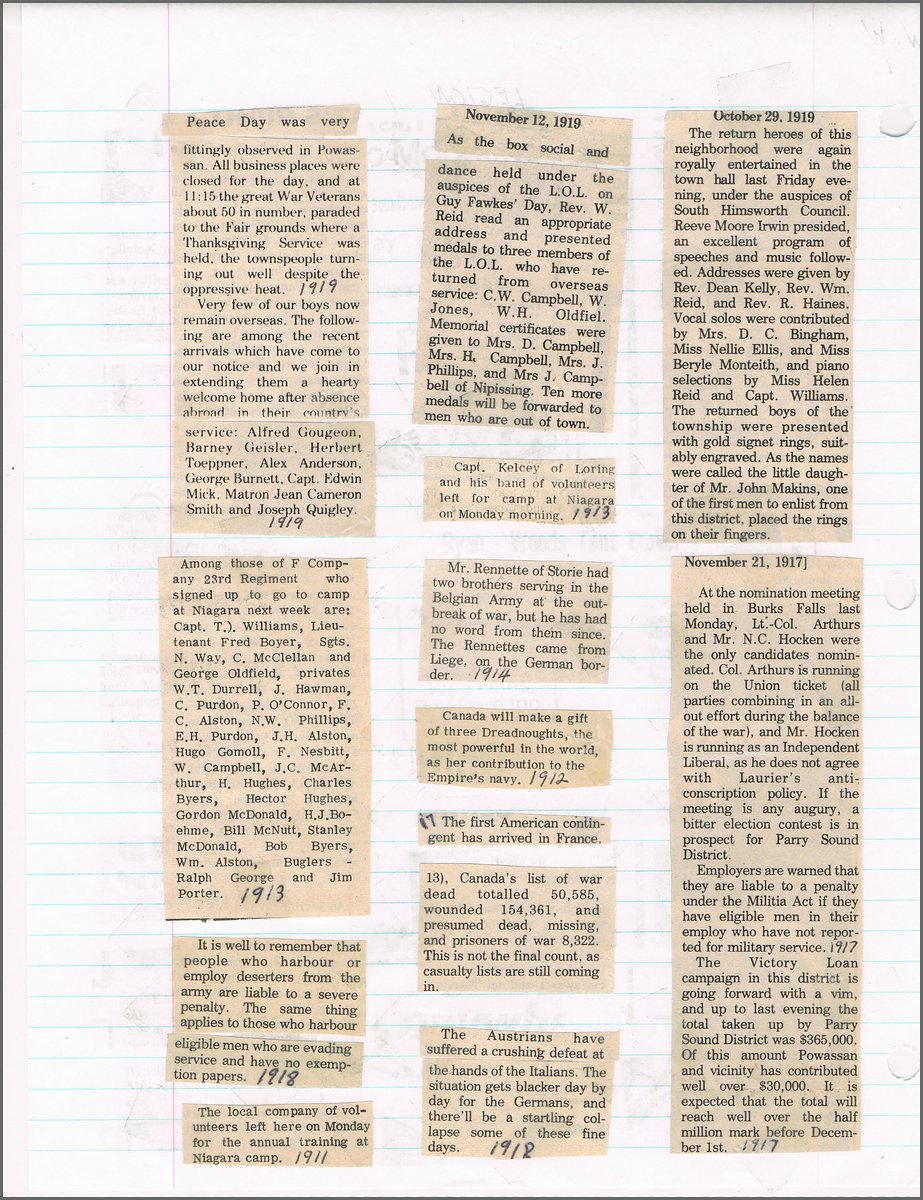 Peace Day was very
fittingly observed in Powas-
san. All business places were
closed for the day, and at
11:15 the great War Veterans
about 50 in number, paraded
to the Fair grounds where a
Thanksgiving Service was
held, the townspeople turn-
ing out well despite the
oppressive heat. 1919
Very few of our boys now
remain overseas. The follow-
ing are among the recent
arrivals which have come to
our notice and we join in
extending them a hearty
welcome home after absence
abroad in their country's
service: Alfred Gougeon,
Barney Geisler, Herbert
Toeppner, Alex Anderson,
George Burnett, Capt. Edwin
Mick, Matron Jean Cameron
Smith and Joseph Quigley.
1919
Among those of F Comp-
any 23rd Regiment who
signed up to go to camp
at Niagara next week are:
Capt. T.). Williams, Lieu-
tenant Fred Boyer, Sgts.
N. Way, C. McClellan and
George Oldfield, privates
W.T. Durrell, J. Hawman,
C. Purdon, P. O'Connor, F.
C. Alston, N.W. Phillips,
E.H. Purdon, J.H. Alston,
Hugo Gomoll, F. Nesbitt,
W. Campbell, J.C. McAr-
thur, H. Hughes, Charles
Byers, Hector Hughes,
Gordon McDonald, H.J.Bo-
ehme, Bill McNutt, Stanley
McDonald, Bob Byers,
Wm. Alston, Buglers -
Ralph George and Jim
Porter. 1913
It is well to remember that
people who harbour or
employ deserters from the
army are liable to a severe
penalty. The same thing
applies to those who harbour
eligible men who are evading
service and have no exemp-
tion papers. 1918
The local company of vol-
unteers left here on Monday
for the annual training at
Niagara camp. 1911
November 12, 1919
As the box social and
dance held under the
auspices of the L.O.L. on
Guy Fawkes' Day, Rev. W.
Reid read an appropriate
address and presented
medals to three members of
the L.O.L. who have re-
turned from overseas
service: C.W. Campbell, W.
Jones, W.H. Oldfiel.
Memorial certificates were
given to Mrs. D. Campbell,
Mrs. H. Campbell, Mrs. J.
Phillips, and Mrs J. Camp-
bell of Nipissing. Ten more
medals will be forwarded to
men who are out of town.
Capt. Kelcey of Loring
and his band of volunteers
left for camp at Niagara
on Monday morning. 1913
Mr. Rennette of Storie had
two brothers serving in the
Belgian Army at the out-
break of war, but he has had
no word from them since.
The Rennettes came from
Liege, on the German bor-
der. 1914
Canada will make a gift
of three Dreadnoughts, the
most powerful in the world,
as her contribution to the
Empire's navy. 1912
17 The first American contin-
gent has arrived in France.
13), Canada's list of war
dead totalled 50,585,
wounded 154,361, and
presumed dead, missing,
and prisoners of war 8,322.
This is not the final count, as
casualty lists are still coming
in.
The Austrians have
suffered a crushing defeat at
the hands of the Italians. The
situation gets blacker day by
day for the Germans, and
there'll be a startling col-
lapse some of these fine
days. 1918
October 29, 1919
The return heroes of this
neighborhood were again
royally entertained in the
town hall last Friday eve-
ning, under the auspices of
South Himsworth Council.
Reeve Moore Irwin presided,
an excellent program of
speeches and music follow-
ed. Addresses were given by
Rev. Dean Kelly, Rev. Wm.
Reid, and Rev. R. Haines.
Vocal solos were contributed
by Mrs. D. C. Bingham,
Miss Nellie Ellis, and Miss
Beryle Monteith, and piano
selections by Miss Helen
Reid and Capt. Williams.
The returned boys of the
township were presented
with gold signet rings, suit-
ably engraved. As the names
were called the little daugh-
ter of Mr. John Makins, one
of the first men to enlist from
this district, placed the rings
on their fingers.
November 21, 1917]
At the nomination meeting
held in Burks Falls last
Monday, Lt.-Col. Arthurs
and Mr. N.C. Hocken were
the only candidates nomin-
ated. Col. Arthurs is running
on the Union ticket (all
parties combining in an all-
out effort during the balance
of the war), and Mr. Hocken
is running as an Independent
Liberal, as he does not agree
with Laurier's anti-
conscription policy. If the
meeting is any augury, a
bitter election contest is in
prospect for Parry Sound
District.
Employers are warned that
they are liable to a penalty
under the Militia Act if they
have eligible men in their
employ who have not repor-
ted for military service. 1917
The Victory Loan
campaign in this district is
going forward with a vim,
and up to last evening the
total taken up by Parry
Sound District was $365,000.
Of this amount Powassan
and vicinity has contributed
well over $30,000. It is
expected that the total will
reach well over the half
million mark before Decem-
ber 1st. 1917